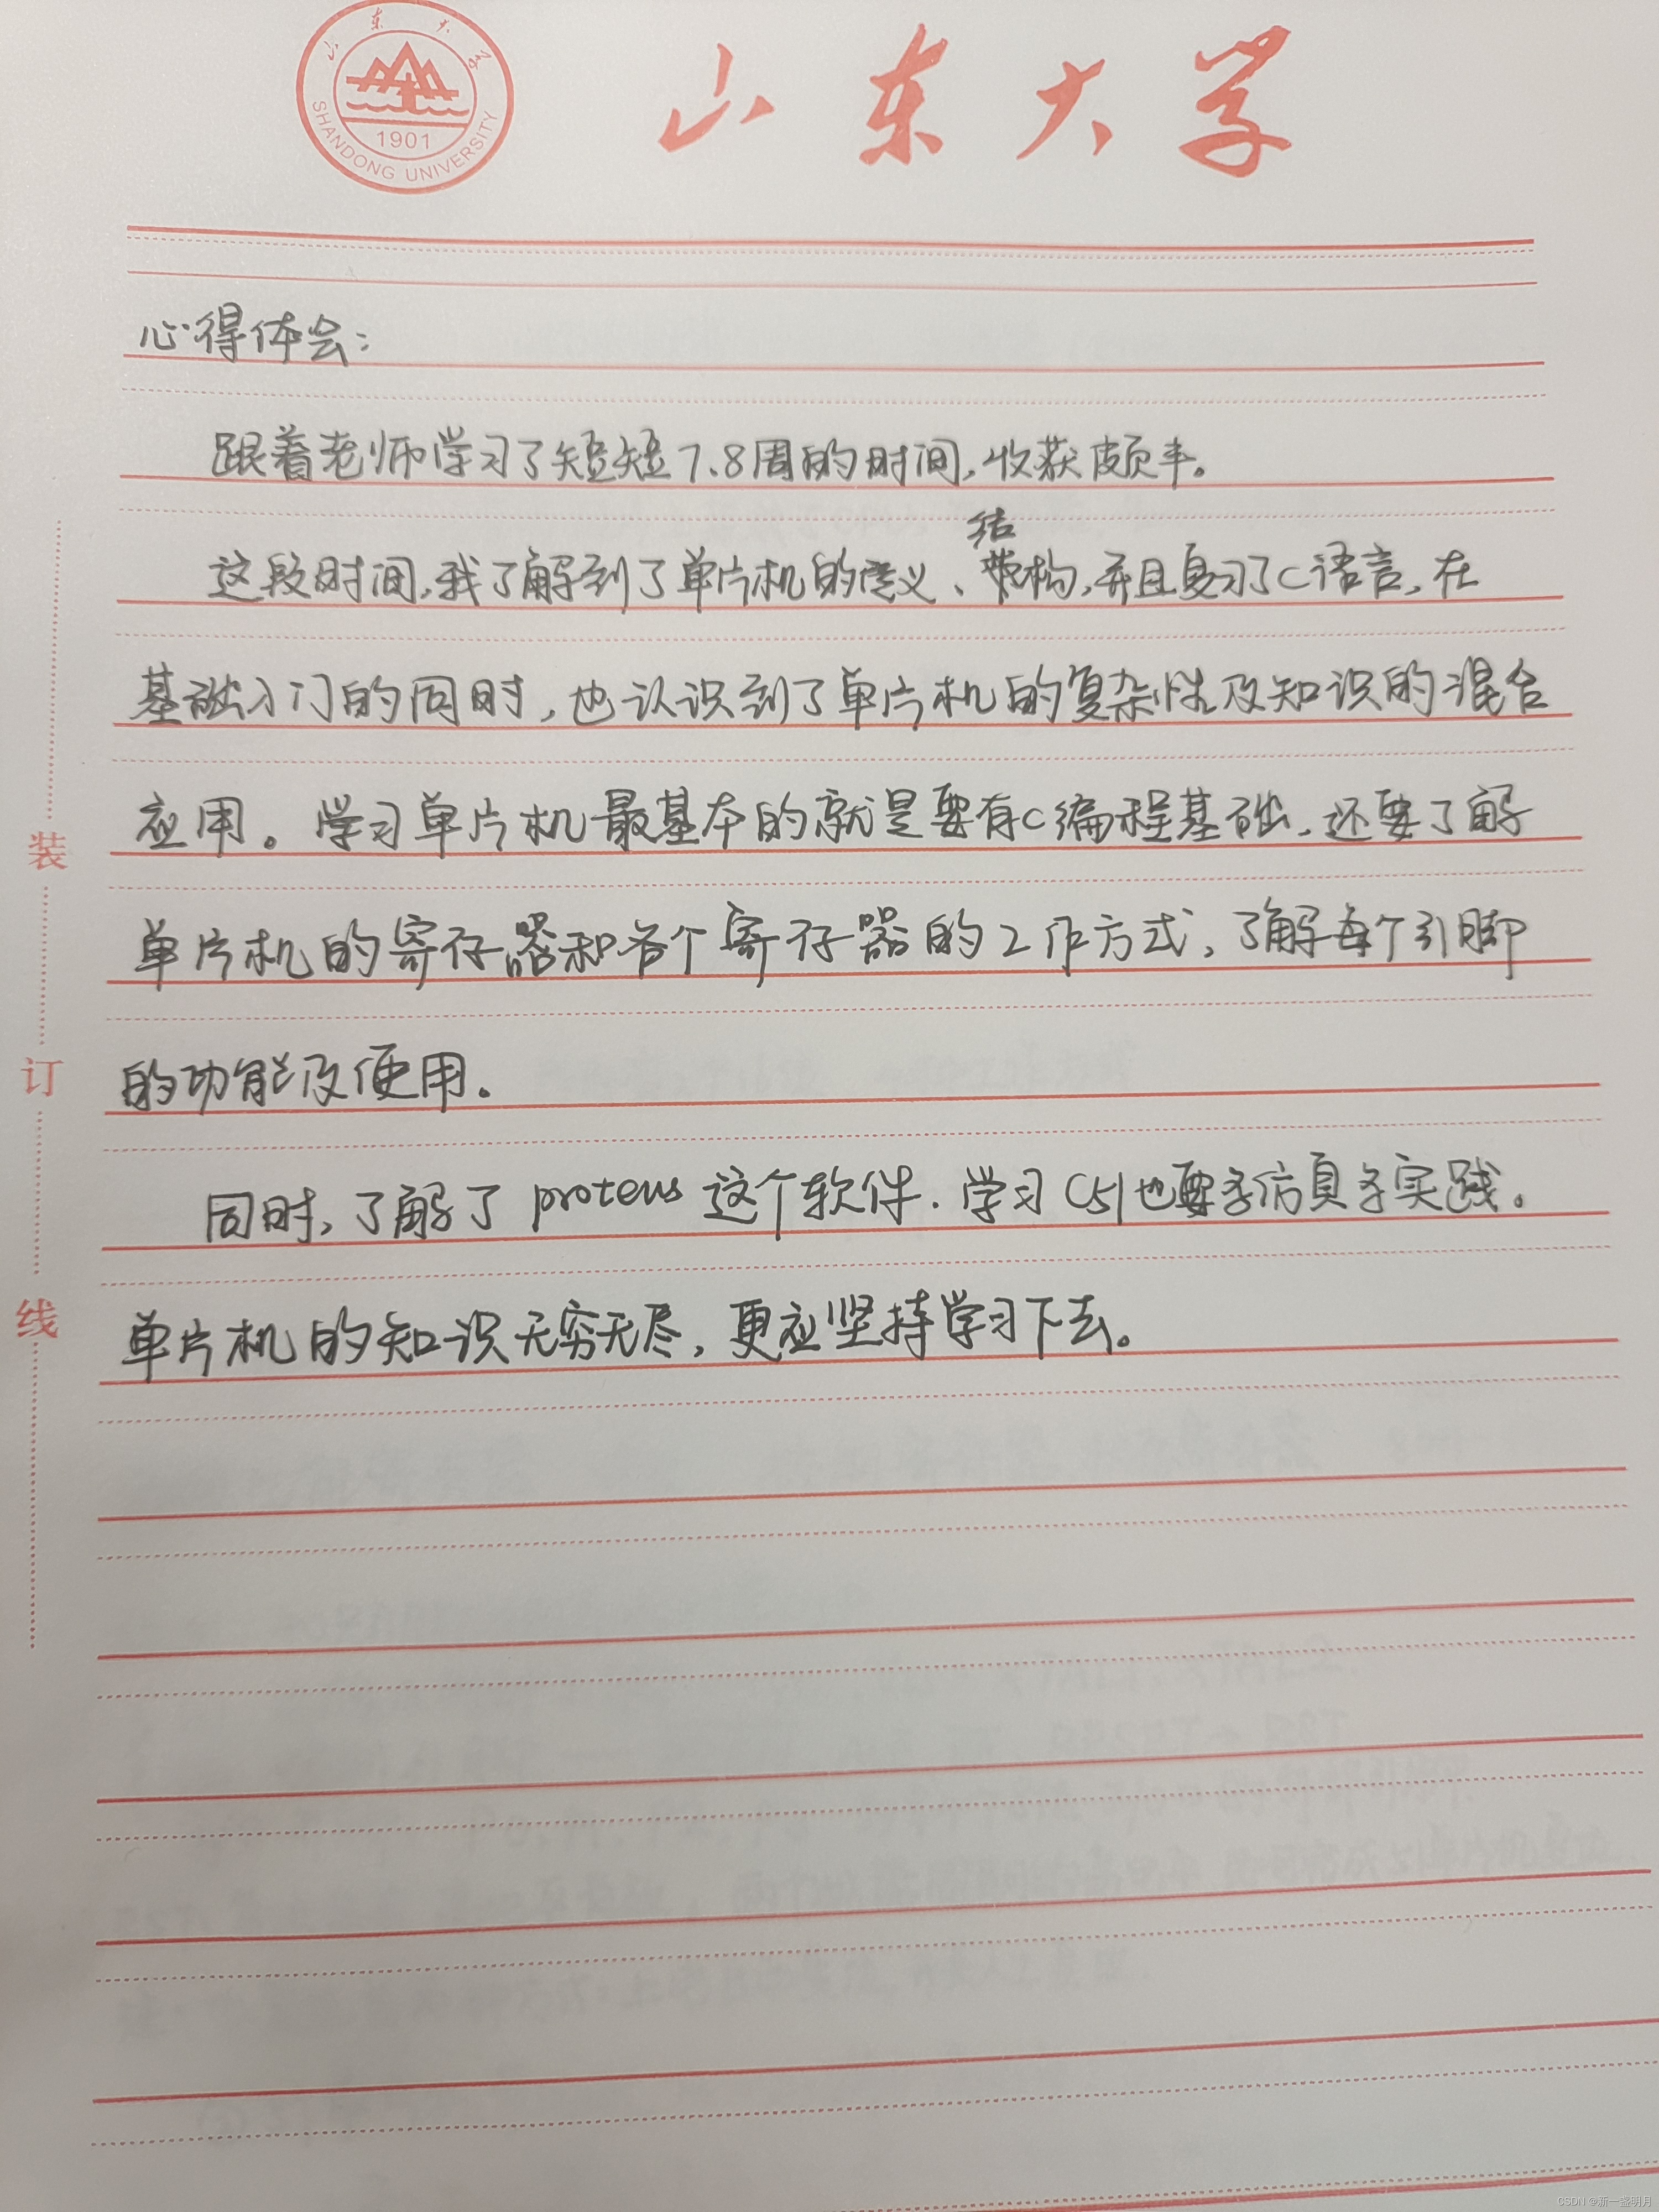 山东大学
SHANDONG UNIVERSITY
1901
山东大学
心得体会:
跟着老师学习了短短7.8周的时间,收获颇丰。
结
这段时间,我了解到了单片机的意义、构,并且复习了C语言,在
基础入门的同时,也认识到了单片机的复杂性及知识的混合
应用。学习单片机最基本的就是要有C编程基础,还要了解
单片机的寄存器和各个寄存器的工作方式,了解每个引脚
的功能及使用。
同时,了解了proteus这个软件.学习C51也要多仿真多实践。
单片机的知识无穷无尽,更应坚持学习下去。
装
订
线
CSDN @新一盏明月